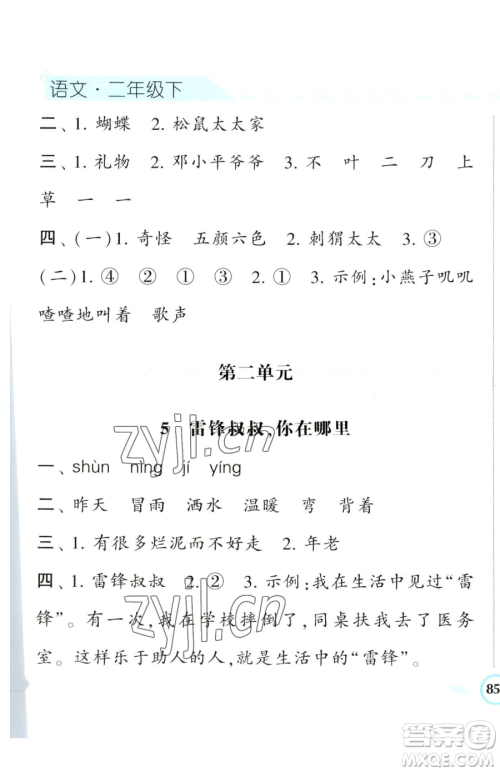 语文·二年级下
二、1. 蝴蝶　2. 松鼠太太家
三、1. 礼物　2. 邓小平爷爷　3. 不　叶　二　刀　上
草　一　一
四、(一)1. 奇怪　五颜六色　2. 刺猬太太　3. ③
(二)1. ④　②　①　③　2. ①　3. 示例:小燕子叽叽
喳喳地叫着　歌声
第二单元
5　雷锋叔叔,你在哪里
一、shùn　nìng　jí　yíng
二、昨天　冒雨　洒水　温暖　弯　背着
三、1. 有很多烂泥而不好走　2. 年老
四、1. 雷锋叔叔　2. ②　3. 示例:我在生活中见过“雷
锋”。有一次,我在学校摔倒了,同桌扶我去了医务
室。这样乐于助人的人,就是生活中的“雷锋”。
85
zyjl.cn
zyjl.cn
答案圈
MXQE.COM